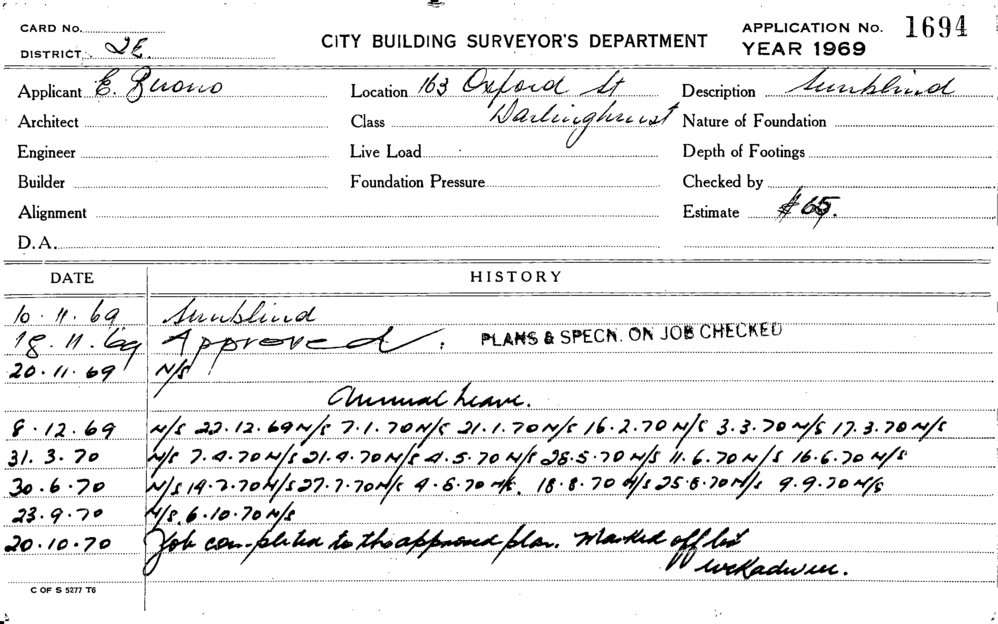 CARD No.
DISTRICT 2E
CITY BUILDING SURVEYOR'S DEPARTMENT
APPLICATION No. 1694
YEAR 1969
Applicant E. Location 163 Oxford St Description Sunblind
Architect Class Darlinghurst Nature of Foundation
Engineer Live Load Depth of Footings
Builder Foundation Pressure Checked by
Alignment Estimate $65.
D.A.
DATE HISTORY
10.11.69 Sunblind
18.11.69 Approved. PLANS & SPECN. ON JOB CHECKED
20.11.69 N/S
Annual Leave.
8.12.69 N/S 22.12.69 N/S 7.1.70 N/S 21.1.70 N/S 16.2.70 N/S 3.3.70 N/S 17.3.70 N/S
31.3.70 N/S 7.4.70 N/S 21.4.70 N/S 4.5.70 N/S 28.5.70 N/S 11.6.70 N/S 16.6.70 N/S
30.6.70 N/S 14.7.70 N/S 27.7.70 N/S 4.8.70 N/S. 18.8.70 N/S 25.8.70 N/S 9.9.70 N/S
23.9.70 N/S 6.10.70 N/S
20.10.70 Job completed to the approved plan. Marked off list
C OF S 5277 T6